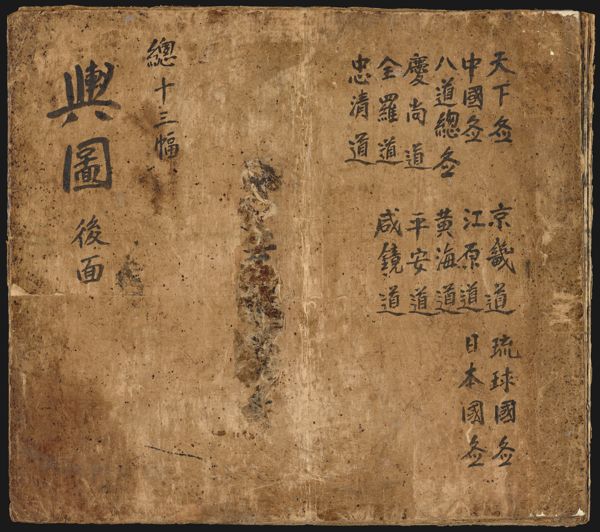 天下圖
中國圖
八道總圖
慶尚道
全羅道
忠清道
京畿道
江原道
黃海道
平安道
咸鏡道
琉球國圖
日本國圖
總十三幅
輿圖 後面